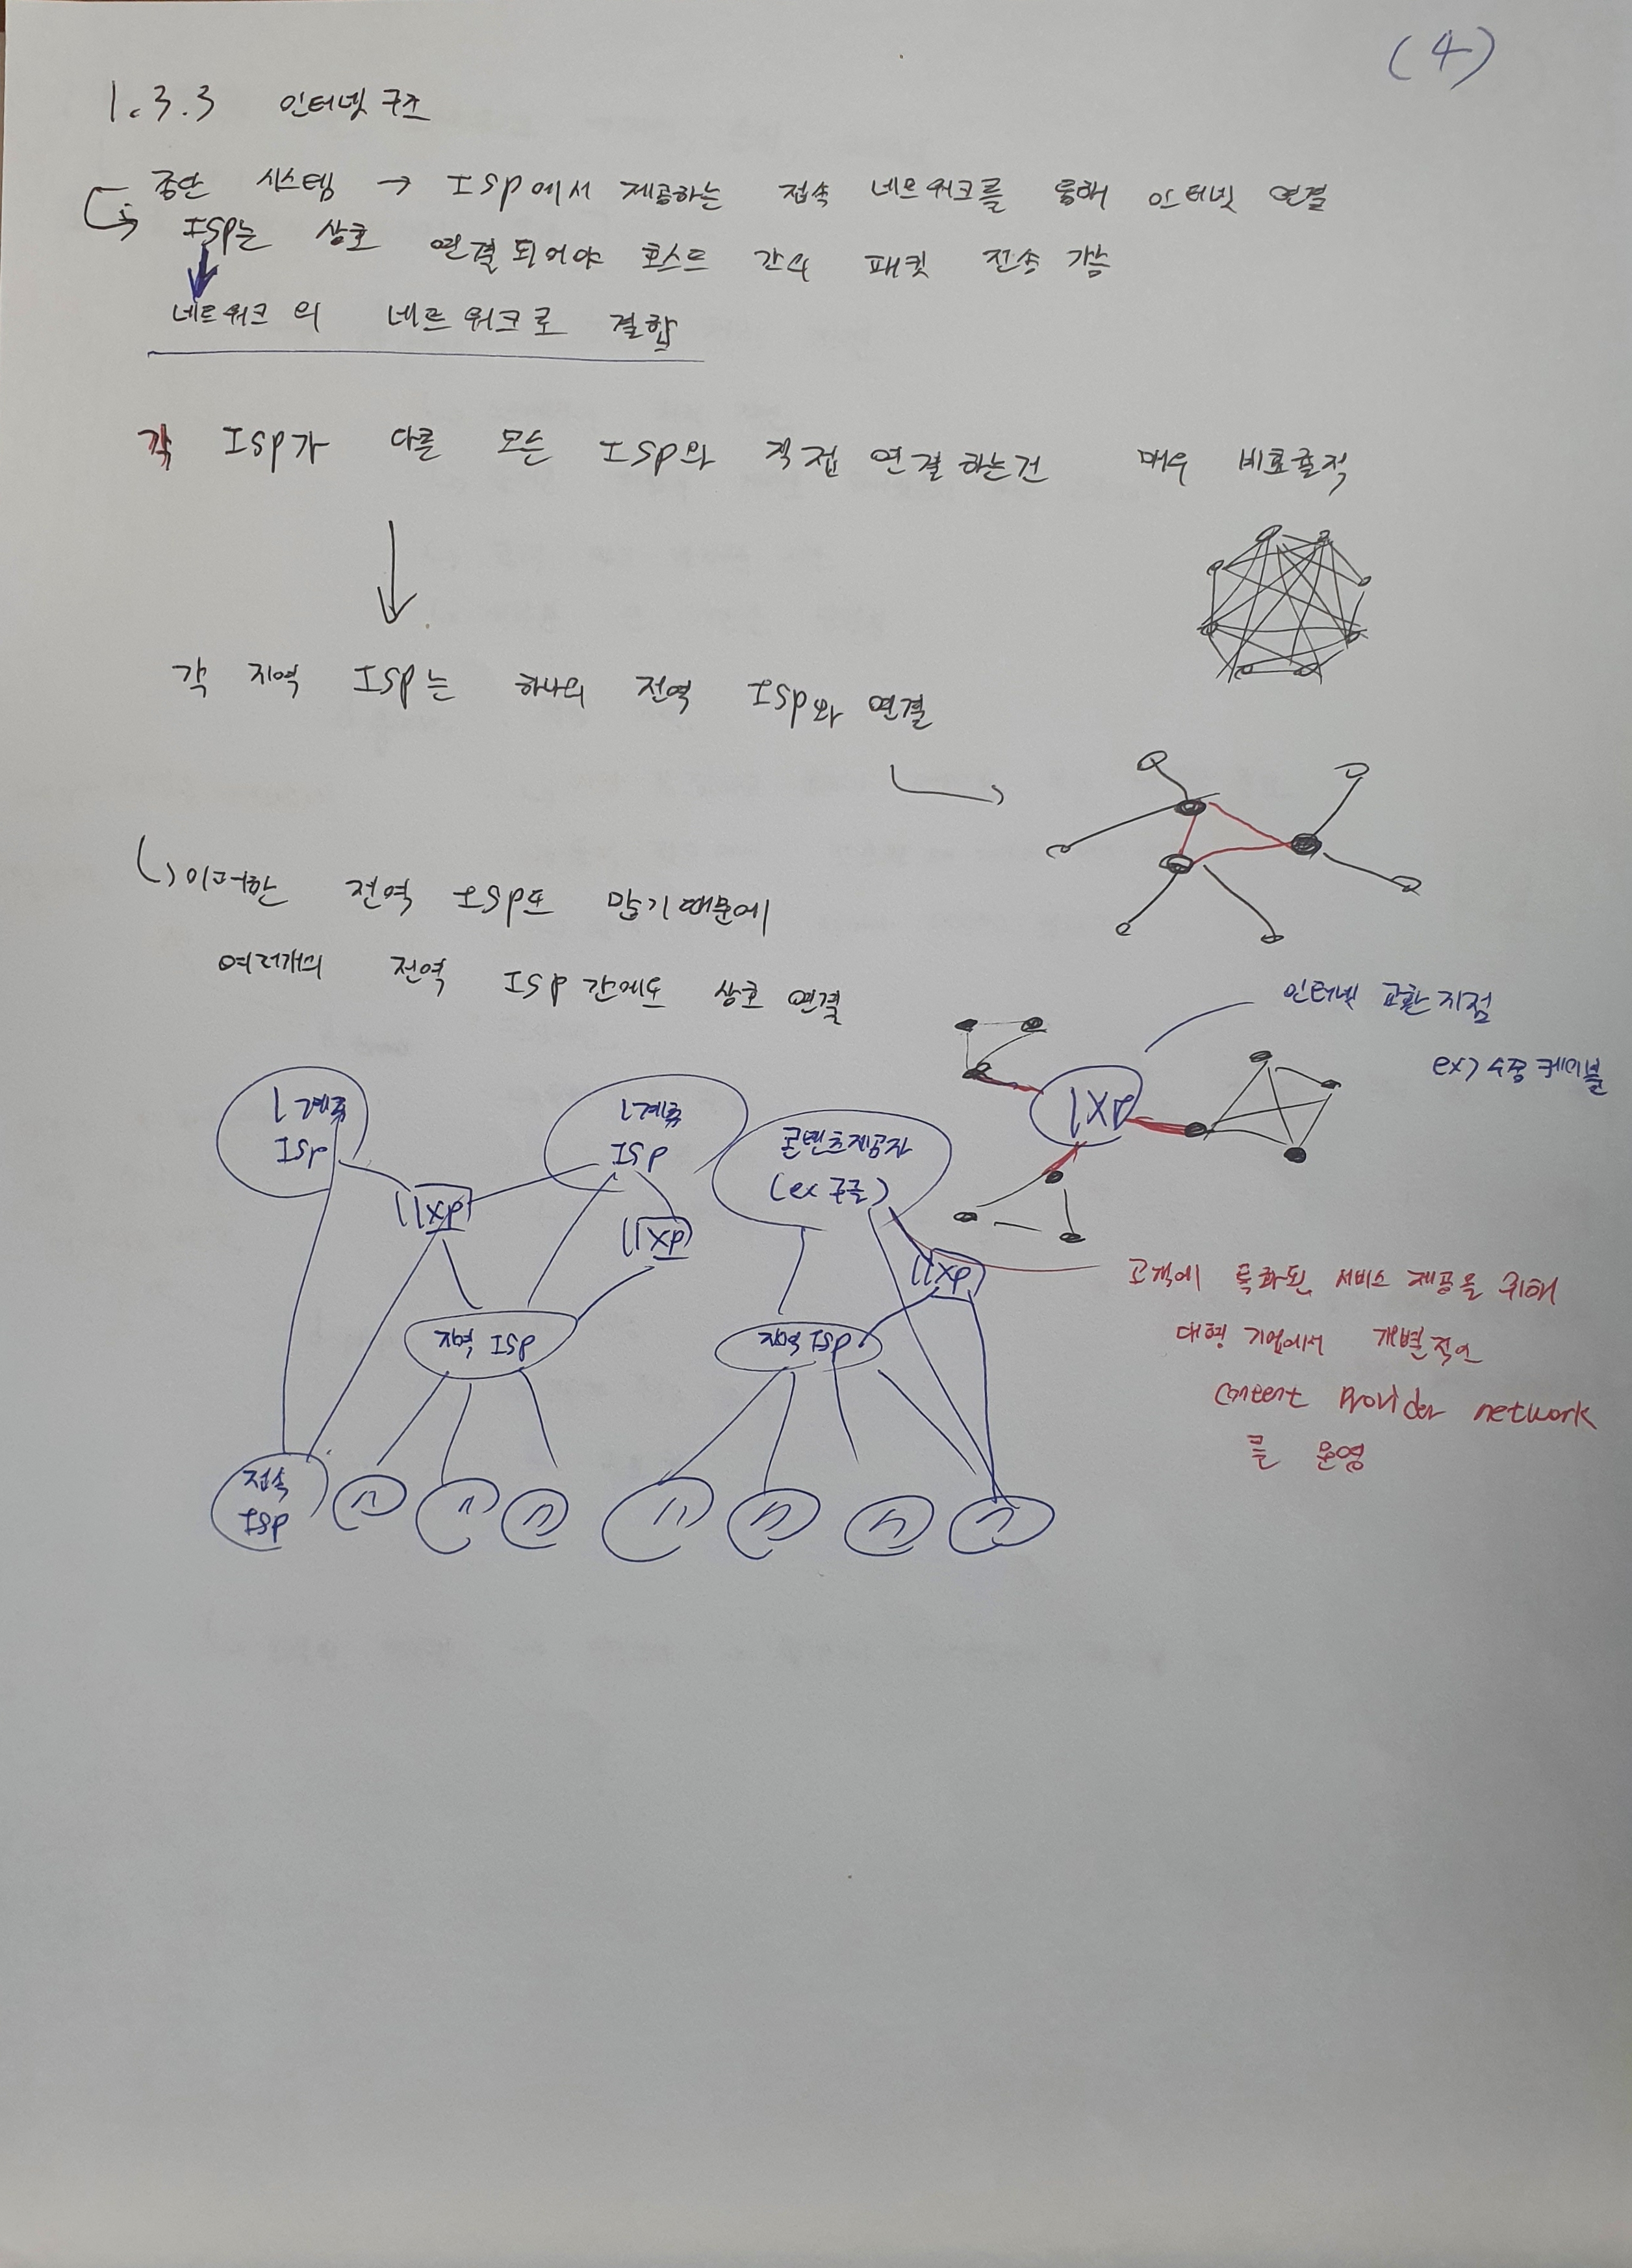 (4)
1.3.3 인터넷 구조
종단 시스템 → ISP에서 제공하는 접속 네트워크를 통해 인터넷 연결
ISP는 상호 연결되어야 호스트 간의 패킷 전송 가능
네트워크의 네트워크로 결합
각 ISP가 다른 모든 ISP와 직접 연결하는건 매우 비효율적
각 지역 ISP는 하나의 전역 ISP와 연결
이러한 전역 ISP도 많기때문에
여러개의 전역 ISP간에도 상호 연결
인터넷 교환 지점
ex) 수중 케이블
IXP
1계층
ISP
1계층
ISP
콘텐츠제공자
(ex 구글)
IXP
IXP
IXP
고객에 특화된 서비스 제공을 위해
대형 기업에서 개별적으
Content Provider network
를 운영
지역 ISP
지역 ISP
접속
ISP